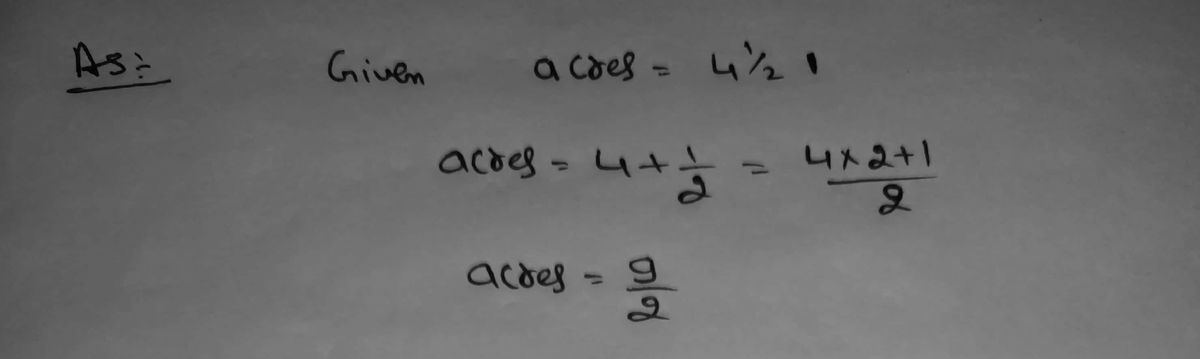 As:- Given acres = 4 1/2
acres = 4 + 1/2 = (4 × 2 + 1)/2
acres = 9/2